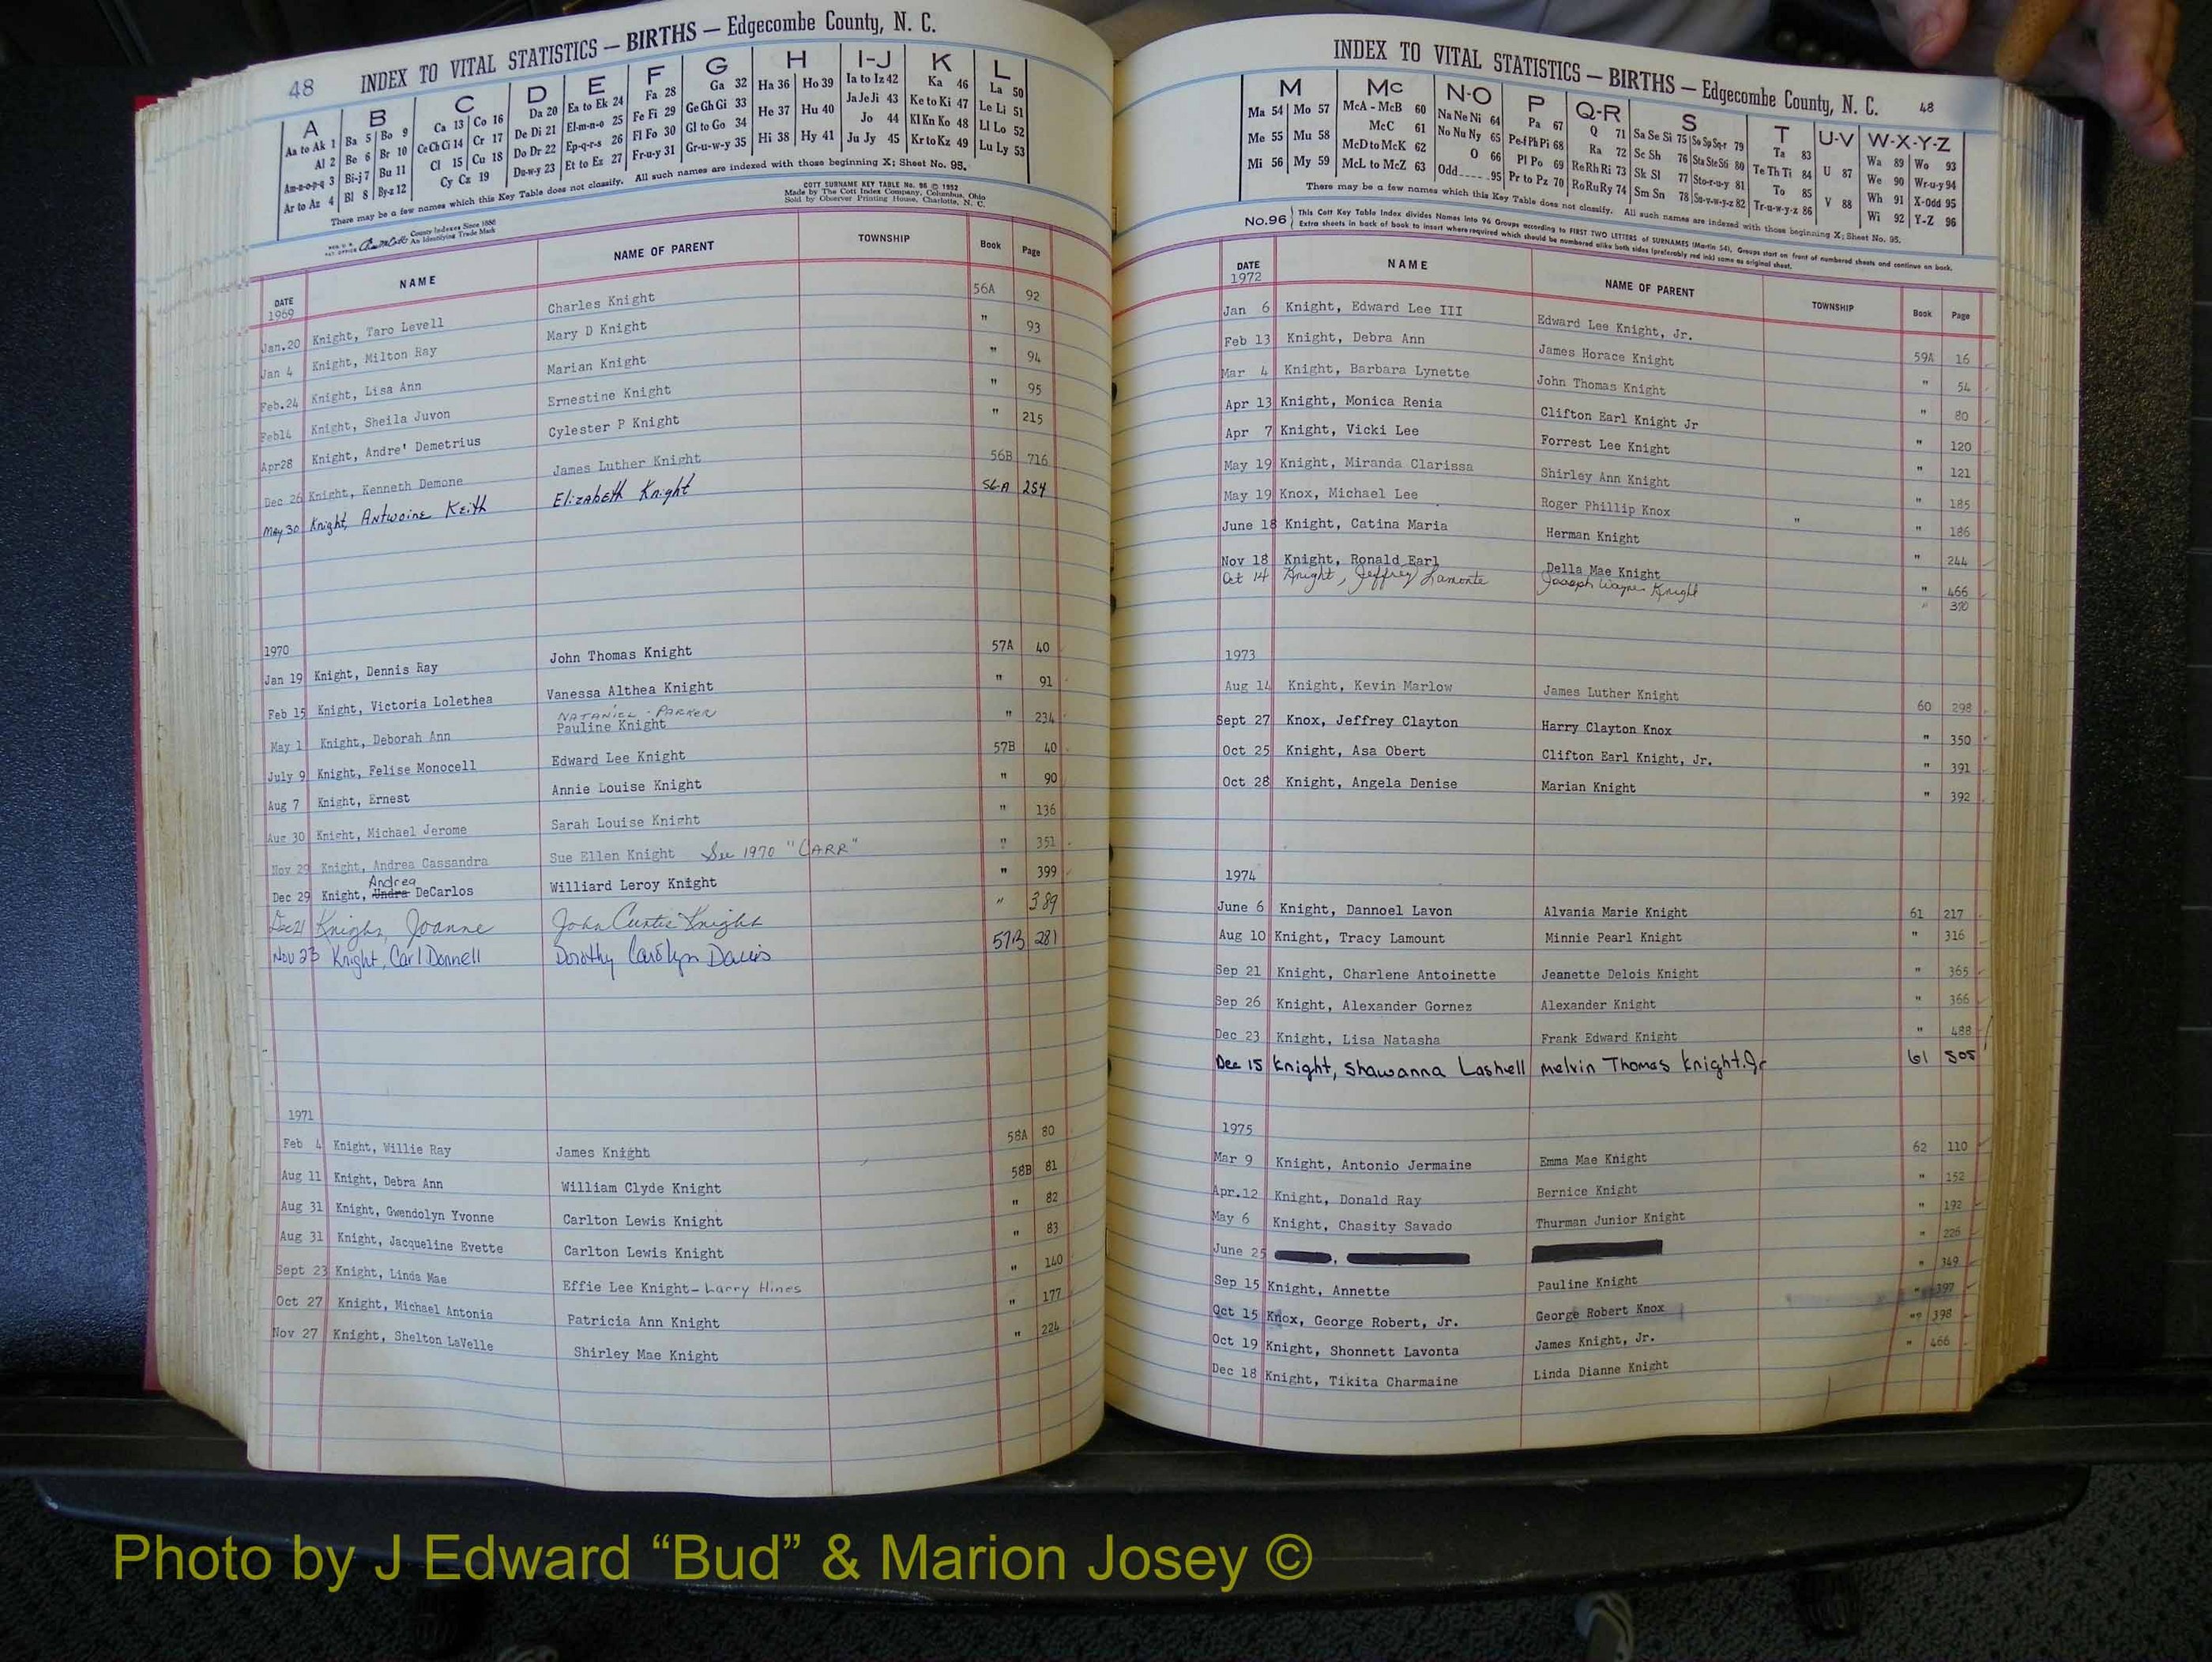 48 INDEX TO VITAL STATISTICS — BIRTHS — Edgecombe County, N. C.
A B C D E F G H I-J K L
Aa to Ak 1 Ba 5 Bo 9 Ca 13 Co 16 Da 20 Ea to Ek 24 Fa 28 Ga 32 Ha 36 Ho 39 Ia to Iz 42 Ka 46 La 50
Al 2 Be 6 Br 10 Ce Ch Ci 14 Cr 17 De Di 21 El-m-n-o 25 Fe Fi 29 Ge Gh Gi 33 He 37 Hu 40 Ja Je Ji 43 Ke to Ki 47 Le Li 51
Am-n-o-p-q 3 Bi-j 7 Bu 11 Cl 15 Cu 18 Do Dr 22 Ep-q-r-s 26 Fl Fo 30 Gl to Go 34 Hi 38 Hy 41 Jo 44 Kl Kn Ko 48 Ll Lo 52
Ar to Az 4 Bl 8 By-z 12 Cy Cz 19 Du-w-y 23 Et to Ez 27 Fr-u-y 31 Gr-u-w-y 35 Ju Jy 45 Kr to Kz 49 Lu Ly 53
There may be a few names which this Key Table does not classify. All such names are indexed with those beginning X; Sheet No. 95.
County Indexes Since 1888
An Identifying Trade Mark
COTT SURNAME KEY TABLE No. 96 © 1952
Made by The Cott Index Company, Columbus, Ohio
Sold by Observer Printing House, Charlotte, N. C.
DATE NAME NAME OF PARENT TOWNSHIP Book Page
1969
Jan.20 Knight, Taro Levell Charles Knight 56A 92
Jan 4 Knight, Milton Ray Mary D Knight " 93
Feb.24 Knight, Lisa Ann Marian Knight " 94
Feb14 Knight, Sheila Juvon Ernestine Knight " 95
Apr28 Knight, Andre' Demetrius Cylester P Knight " 215
Dec 26 Knight, Kenneth Demone James Luther Knight 56B 716
May 30 Knight, Antwoine Keith Elizabeth Knight 56-A 254
1970
Jan 19 Knight, Dennis Ray John Thomas Knight 57A 40
Feb 15 Knight, Victoria Lolethea Vanessa Althea Knight " 91
NATANIEL - PARKER
May 1 Knight, Deborah Ann Pauline Knight " 234
July 9 Knight, Felise Monocell Edward Lee Knight 57B 40
Aug 7 Knight, Ernest Annie Louise Knight " 90
Aug 30 Knight, Michael Jerome Sarah Louise Knight " 136
Nov 29 Knight, Andrea Cassandra Sue Ellen Knight See 1970 "CARR" " 351
Andrea
Dec 29 Knight, Undra DeCarlos Williard Leroy Knight " 399
Dec 21 Knight, Joanne John Curtis Knight " 389
Nov 23 Knight, Carl Donnell Dorothy Carolyn Davis 57B 281
1971
Feb 4 Knight, Willie Ray James Knight 58A 80
Aug 11 Knight, Debra Ann William Clyde Knight 58B 81
Aug 31 Knight, Gwendolyn Yvonne Carlton Lewis Knight " 82
Aug 31 Knight, Jacqueline Evette Carlton Lewis Knight " 83
Sept 23 Knight, Linda Mae Effie Lee Knight - Larry Hines " 140
Oct 27 Knight, Michael Antonia Patricia Ann Knight " 177
Nov 27 Knight, Shelton LaVelle Shirley Mae Knight " 224
INDEX TO VITAL STATISTICS — BIRTHS — Edgecombe County, N. C. 48
M Mc N-O P Q-R S T U-V W-X-Y-Z
Ma 54 Mo 57 McA - McB 60 Na Ne Ni 64 Pa 67 Q 71 Sa Se Si 75 So Sp Sq-r 79 Ta 83 U 87 Wa 89 Wo 93
Me 55 Mu 58 McC 61 No Nu Ny 65 Pe-f Ph Pi 68 Ra 72 Sc Sh 76 Sta Ste Sti 80 Te Th Ti 84 V 88 We 90 Wr-u-y 94
Mi 56 My 59 McD to McK 62 O 66 Pl Po 69 Re Rh Ri 73 Sk Sl 77 Sto-r-u-y 81 To 85 Wh 91 X-Odd 95
McL to McZ 63 Odd 95 Pr to Pz 70 Ro Ru Ry 74 Sm Sn 78 Su-v-w-y-z 82 Tr-u-w-y-z 86 Wi 92 Y-Z 96
There may be a few names which this Key Table does not classify. All such names are indexed with those beginning X; Sheet No. 95.
No.96 This Cott Key Table Index divides Names into 96 Groups according to FIRST TWO LETTERS of SURNAMES (Martin 54). Groups start on front of numbered sheets and continue on back.
Extra sheets in back of book to insert where required which should be numbered alike both sides (preferably red ink) same as original sheet.
DATE NAME NAME OF PARENT TOWNSHIP Book Page
1972
Jan 6 Knight, Edward Lee III Edward Lee Knight, Jr. 59A 16
Feb 13 Knight, Debra Ann James Horace Knight " 54
Mar 4 Knight, Barbara Lynette John Thomas Knight " 80
Apr 13 Knight, Monica Renia Clifton Earl Knight Jr " 120
Apr 7 Knight, Vicki Lee Forrest Lee Knight " 121
May 19 Knight, Miranda Clarissa Shirley Ann Knight " 185
May 19 Knox, Michael Lee Roger Phillip Knox " " 186
June 18 Knight, Catina Maria Herman Knight " 244
Nov 18 Knight, Ronald Earl Della Mae Knight " 466
Oct 14 Knight, Jeffrey Lamonte Joseph Wayne Knight " 390
1973
Aug 14 Knight, Kevin Marlow James Luther Knight 60 298
Sept 27 Knox, Jeffrey Clayton Harry Clayton Knox " 350
Oct 25 Knight, Asa Obert Clifton Earl Knight, Jr. " 391
Oct 28 Knight, Angela Denise Marian Knight " 392
1974
June 6 Knight, Dannoel Lavon Alvania Marie Knight 61 217
Aug 10 Knight, Tracy Lamount Minnie Pearl Knight " 316
Sep 21 Knight, Charlene Antoinette Jeanette Delois Knight " 365
Sep 26 Knight, Alexander Gornez Alexander Knight " 366
Dec 23 Knight, Lisa Natasha Frank Edward Knight " 488
Dec 15 Knight, Shawanna Lashell Melvin Thomas Knight, Jr 61 505
1975
Mar 9 Knight, Antonio Jermaine Emma Mae Knight 62 110
Apr.12 Knight, Donald Ray Bernice Knight " 152
May 6 Knight, Chasity Savado Thurman Junior Knight " 192
June 25 , " 226
Sep 15 Knight, Annette Pauline Knight " 349
Oct 15 Knox, George Robert, Jr. George Robert Knox " 397
Oct 19 Knight, Shonnett Lavonta James Knight, Jr. " 398
Dec 18 Knight, Tikita Charmaine Linda Dianne Knight " 466
Photo by J Edward “Bud” & Marion Josey ©